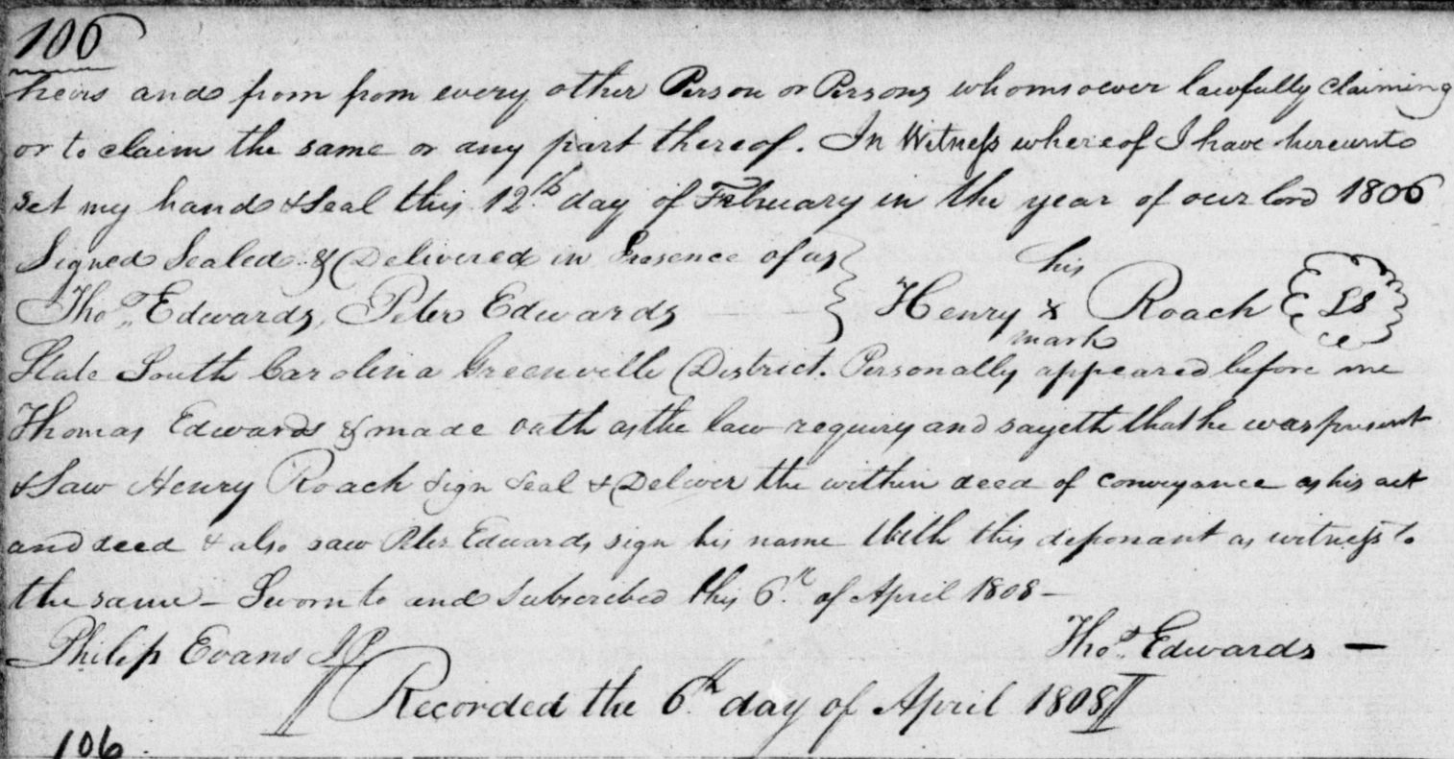 106
heirs and from from every other Person or Persons whomsoever lawfully claiming
or to claim the same or any part thereof. In Witness whereof I have hereunto
set my hand & Seal this 12th day of February in the year of our lord 1806
Signed Sealed & Delivered in Presence of us
his
Thos. Edwards, Peter Edwards Henry x Roach LS
mark
State South Carolina Greenville District. Personally appeared before me
Thomas Edwards & made oath as the law requires and sayeth that he was present
& Saw Henry Roach Sign Seal & Deliver the within deed of conveyance as his act
and deed & also saw Peter Edwards sign his name With this deponant as witness to
the same – Sworn to and Subscribed this 6th of April 1808 –
Philip Evans JP Thos. Edwards –
Recorded the 6th day of April 1808
106